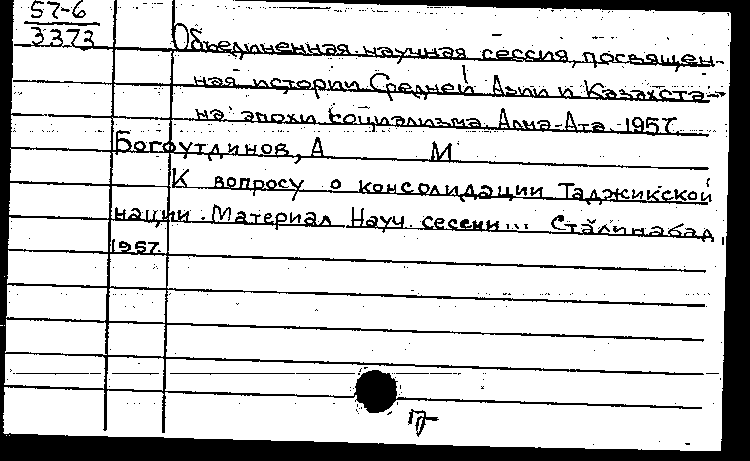 57-6
3373
Объединенная научная сессия, посвящен-
ная истории Средней Азии и Казахста-
на эпохи социализма. Алма-Ата. 1957.
Богоутдинов, А М
К вопросу о консолидации Таджикской
нации. Материал Науч. сессии... Сталинабад,
1957.